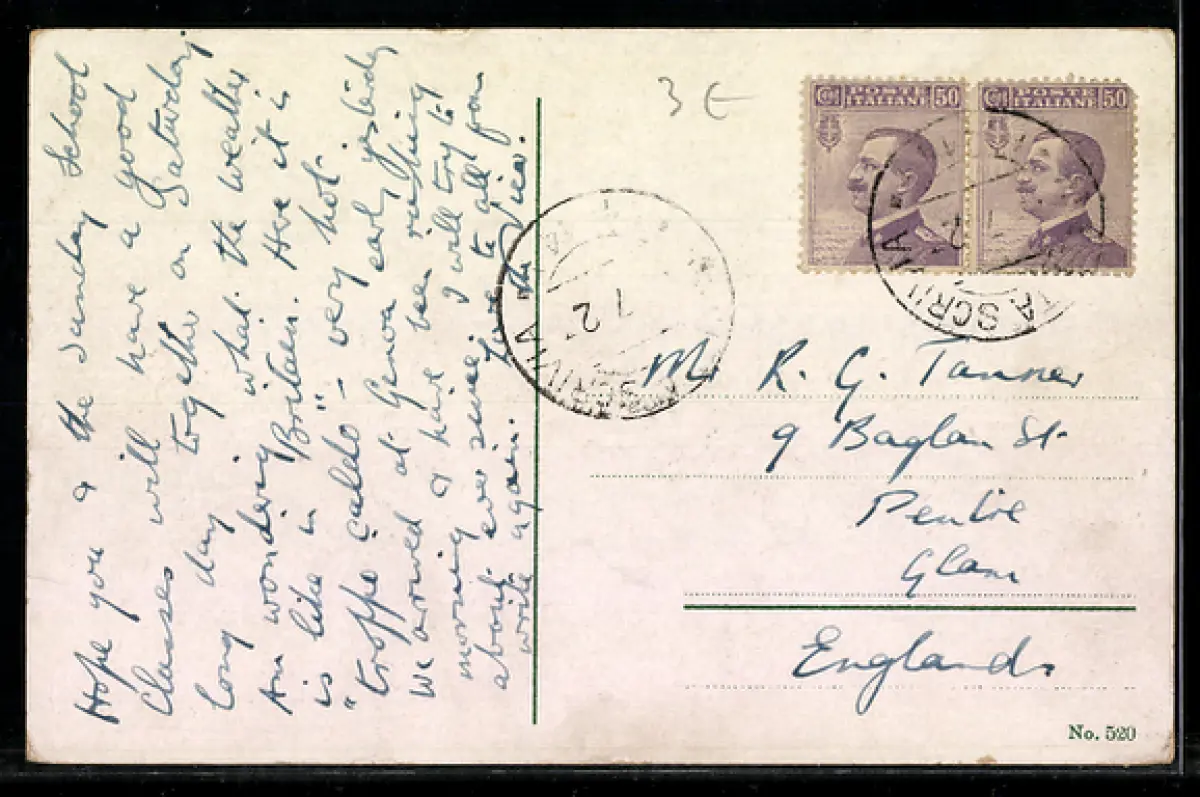 Hope you & the Sunday School
Classes will have a good
long day together on Saturday.
Am wondering what the weather
is like in Britain. Here it is
"troppe caldo" – very hot.
We arrived at Genoa early yesterday
morning & have been rushing
about ever since. I will try to
write again. Love to all from
Vica.
3 €
POSTE ITALIANE 50
POSTE ITALIANE 50
SCRIVIA
7 2
SCRIVIA
Mr R. G. Tanner
9 Baglan St.
Pentre
Glam
England
No. 520